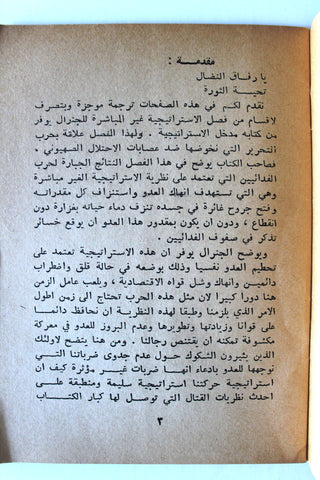 مقدمــة :
يا رفاق النضال
تحية الثورة
نقدم لكم في هذه الصفحات ترجمة موجزة وبتصرف
لاقسام من فصل الاستراتيجية غير المباشرة للجنرال يوفر
من كتابه مدخل الاستراتيجية . ولهذا الفصل علاقة بحرب
التحرير التي نخوضها ضد عصابات الاحتلال الصهيوني .
فصاحب الكتاب يوضح في هذا الفصل النتائج الجبارة لحرب
الفدائيين التي تعتمد على نظرية الاستراتيجية الغير مباشرة
وهي التي تستهدف انهاك العدو واستنزاف كل مقدراته
وفتح جروح غائرة في جسده تنزف دماء حياته بغزارة دون
انقطاع ، ودون ان يكون بمقدور هذا العدو ان يوقع خسائر
تذكر في صفوف الفدائيين .
ويوضح الجنرال يوفر ان هذه الاستراتيجية تعتمد على
تحطيم العدو نفسيا وذلك بوضعه في حالة قلق واضطراب
دائمين وانهاك وشل قواه الاقتصادية ، ويلعب عامل الزمن
هنا دورا كبيرا لان مثل هذه الحرب تحتاج الى زمن اطول
الامر الذي يلزمنا وطبقا لهذه النظرية ان نحافظ دائما
على قوانا وزيادتها وتطويرها وعدم البروز للعدو في معركة
مكشوفة تمكنه ان يقتنص رجالنا . ومن هنا يتضح لاولئك
الذين يثيرون الشكوك حول عدم جدوى ضرباتنا التي
نوجهها للعدو بادعاء انها ضربات غير مؤثرة كيف ان
استراتيجية حركتنا استراتيجية سليمة ومنطبقة على
احدث نظريات القتال التي توصل لها كبار الكتاب
٣